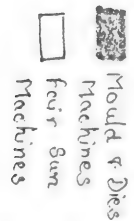 Mould & Dies
Machines
Fair Sun
Machines